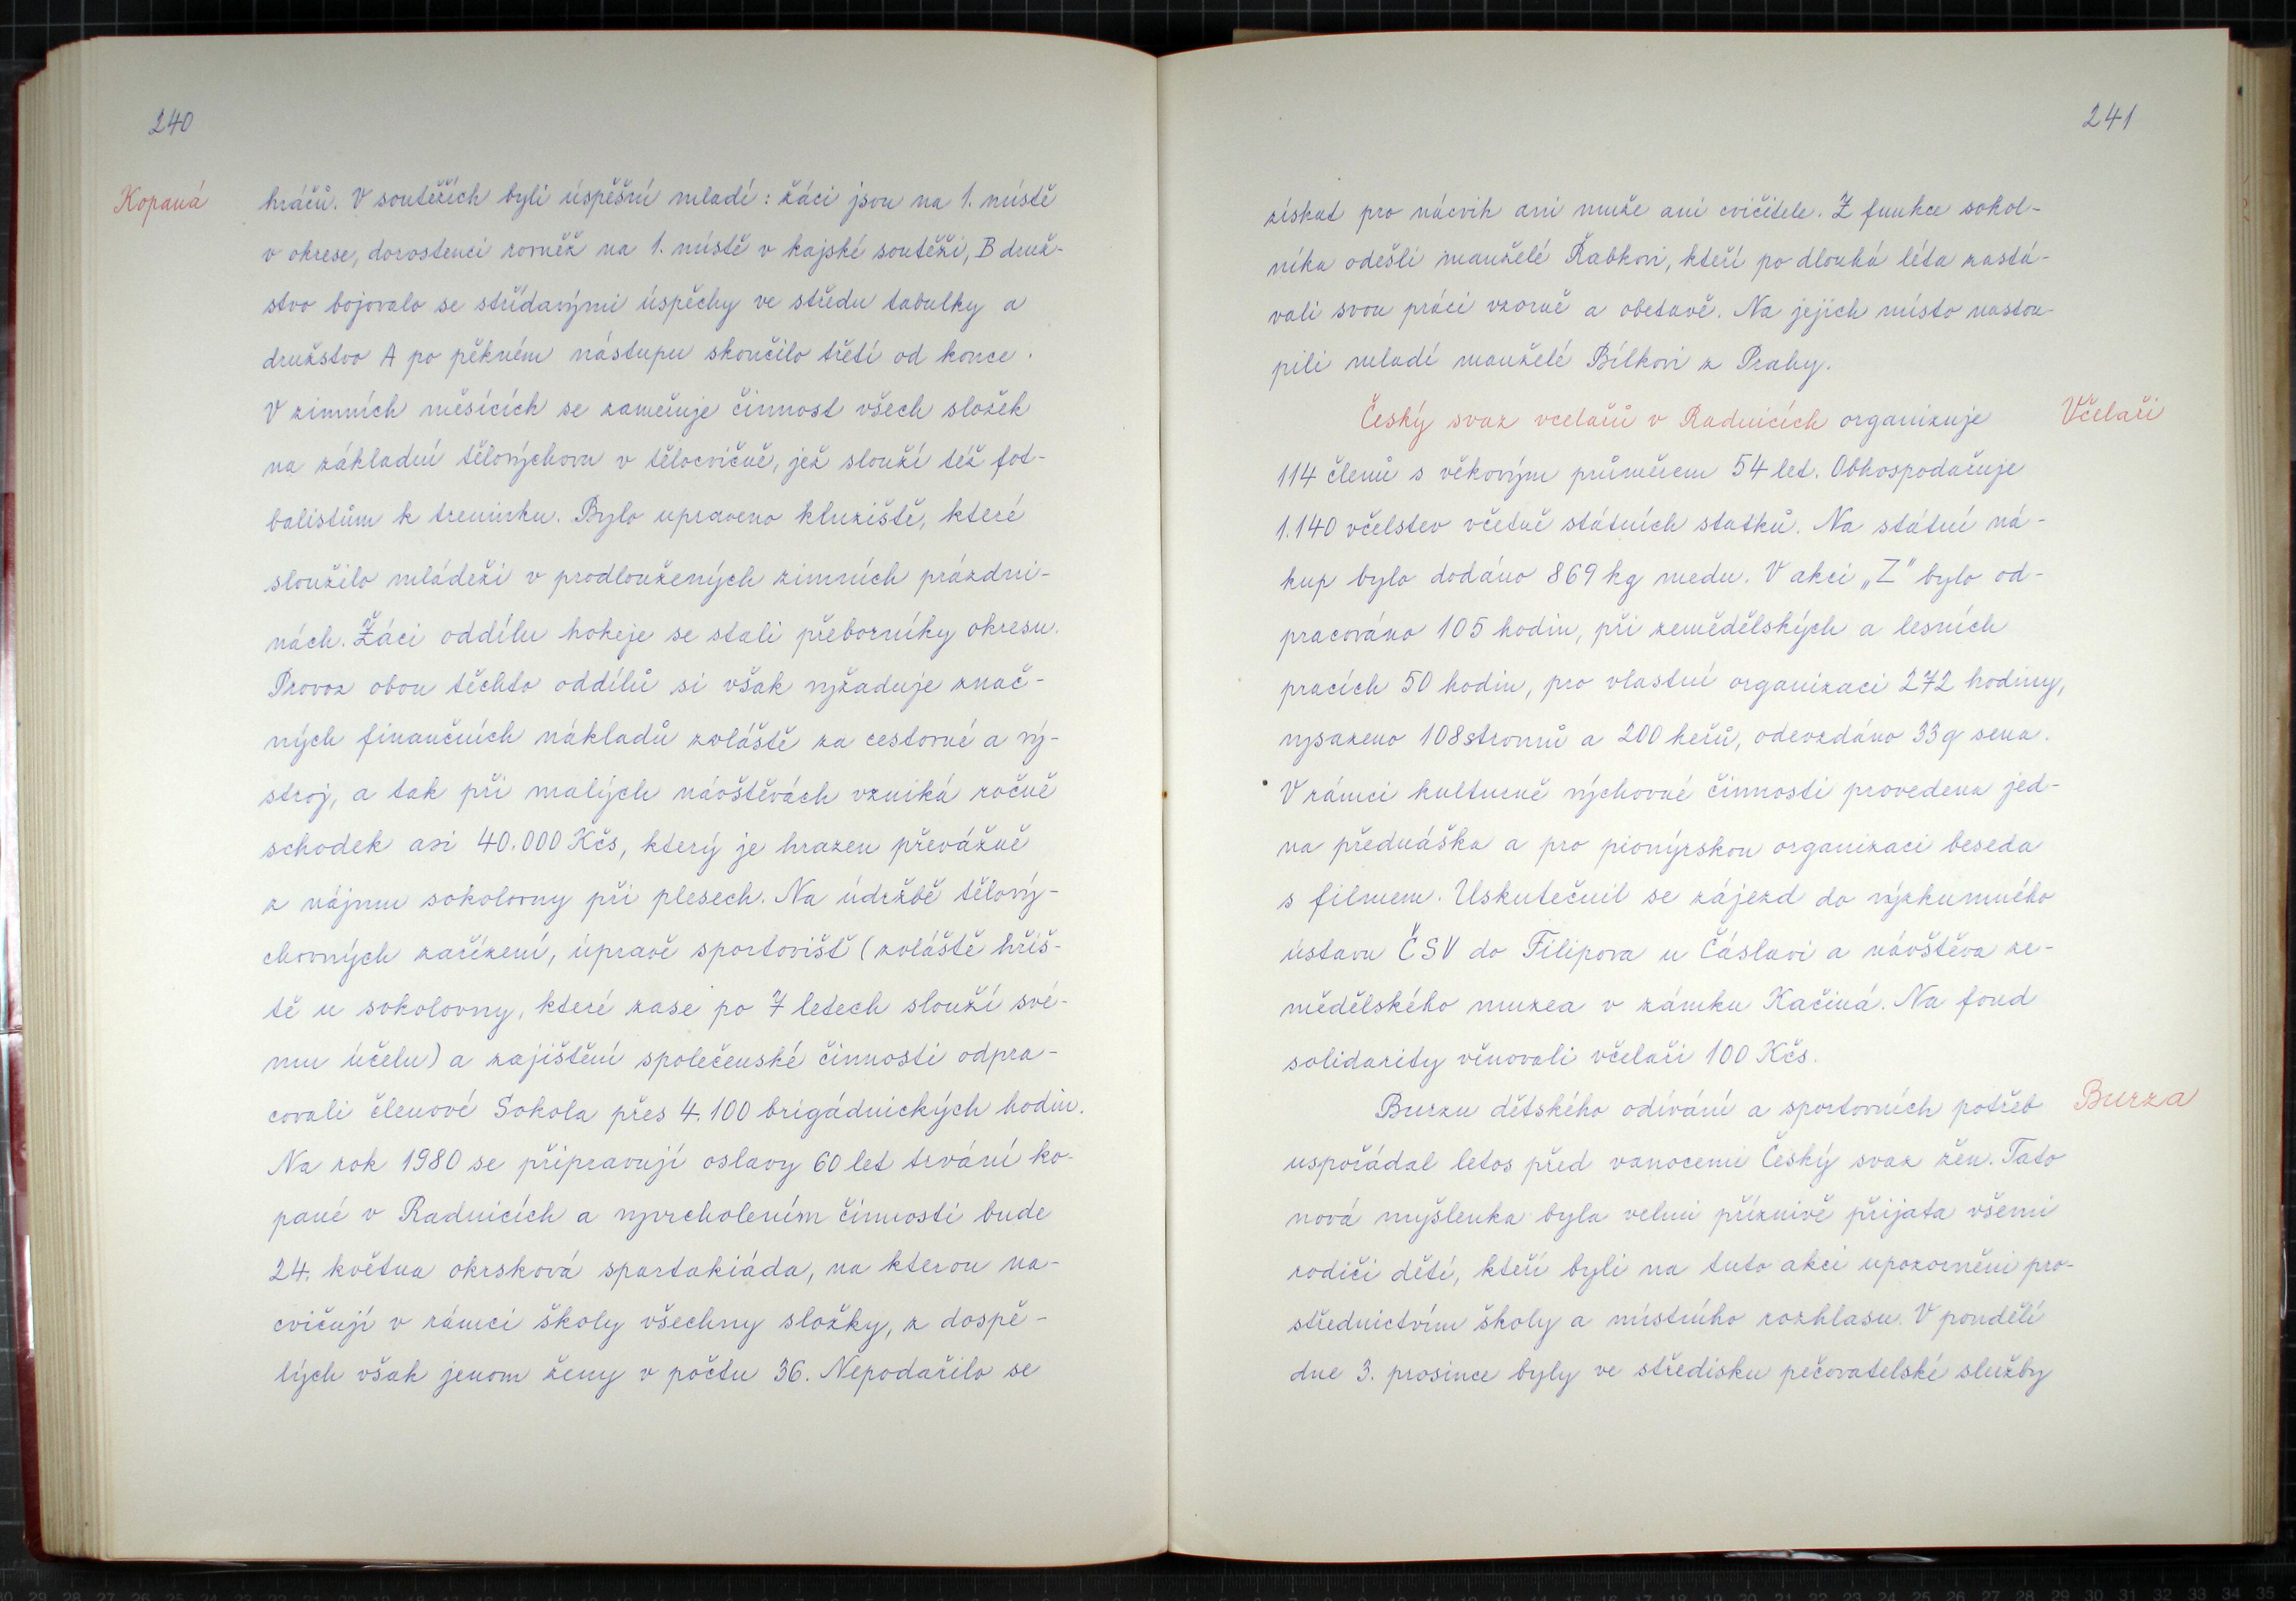 240
Kopaná
hráčů. V soutěžích byli úspěšní mladí: žáci jsou na 1. místě
v okrese, dorostenci rovněž na 1. místě v kajské soutěži, B druž-
stvo bojovalo se střídavými úspěchy ve středu tabulky a
družstvo A po pěkném nástupu skončilo třetí od konce.
V zimních měsících se zaměřuje činnost všech složek
na základní tělovýchovu v tělocvičně, jež slouží též fot-
balistům k treninku. Bylo upraveno kluziště, které
sloužilo mládeži v prodloužených zimních prázdni-
nách. Žáci oddílu hokeje se stali přeborníky okresu.
Provoz obou těchto oddílů si však vyžaduje znač-
ných finančních nákladů zvláště za cestovné a vý-
stroj, a tak při malých návštěvách vzniká ročně
schodek asi 40.000 Kčs, který je hrazen převážně
z nájmu sokolovny při plesech. Na údržbě tělový-
chovných zařízení, úpravě sportovišť (zvláště hřiš-
tě u sokolovny, které zase po 7 letech slouží své-
mu účelu) a zajištění společenské činnosti odpra-
covali členové Sokola přes 4.100 brigádnických hodin.
Na rok 1980 se připravují oslavy 60 let trvání ko-
pané v Radnicích a vyvrcholením činnosti bude
24. května okrsková spartakiáda, na kterou na-
cvičují v rámci školy všechny složky, z dospě-
lých však jenom ženy v počtu 36. Nepodařilo se
241
získat pro nácvih ani muže ani cvičitele. Z funkce sokol-
níka odešli manželé Řabkovi, kteří po dlouhá léta zastá-
vali svou práci vzorně a obetavě. Na jejich místo nastou-
pili mladí manželé Bílkovi z Prahy.
Včelaři
Český svaz vcelařů v Radnicích organizuje
114 členů s věkovým průměrem 54 let. Obhospodařuje
1.140 včelstev včetně státních statků. Na státní ná-
kup bylo dodáno 869 kg medu. V akci „Z" bylo od-
pracováno 105 hodin, při zemědělských a lesních
pracích 50 hodin, pro vlastní organizaci 272 hodiny,
vysazeno 108 stromů a 200 keřů, odevzdáno 33 q sena.
V rámci kulturně výchovné činnosti provedena jed-
na přednáška a pro pionýrskou organizaci beseda
s filmem. Uskutečnil se zájezd do výzkumného
ústavu ČSV do Filipova u Čáslavi a návštěva ze-
mědělského muzea v zámku Kačiná. Na fond
solidarity věnovali včelaři 100 Kčs.
Burza
Burzu dětského odívání a sportovních potřeb
uspořádal letos před vanocemi Český svaz žen. Tato
nová myšlenka byla velmi příznivě přijata všemi
rodiči dětí, kteří byli na tuto akci upozorněni pro-
střednictvím školy a místního rozhlasu. V pondělí
dne 3. prosince byly ve středisku pečovatelské služby